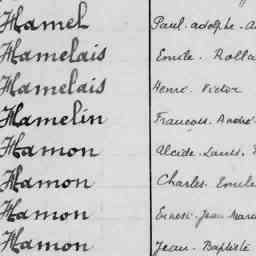 Hamel Paul-Adolphe-A
Hamelais Emile-Rolla
Hamelais Henri-Victor
Hamelin François-André
Hamon Alcide-Louis-
Hamon Charles-Emile
Hamon Ernest-Jean-Mari
Hamon Jean-Baptiste